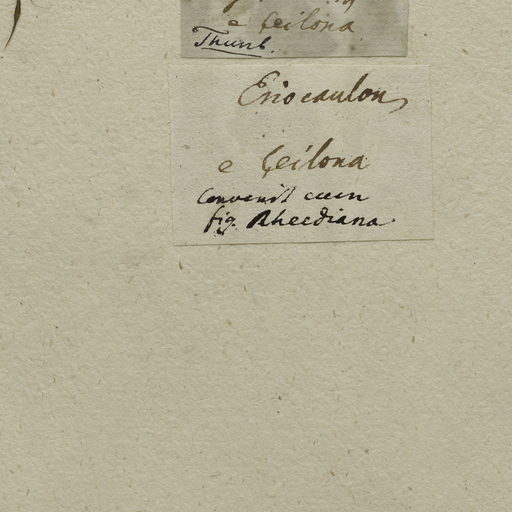 e Ceilona
Thunb.
Eriocaulon
e Ceilona
Convenit cum
fig. Rheediana